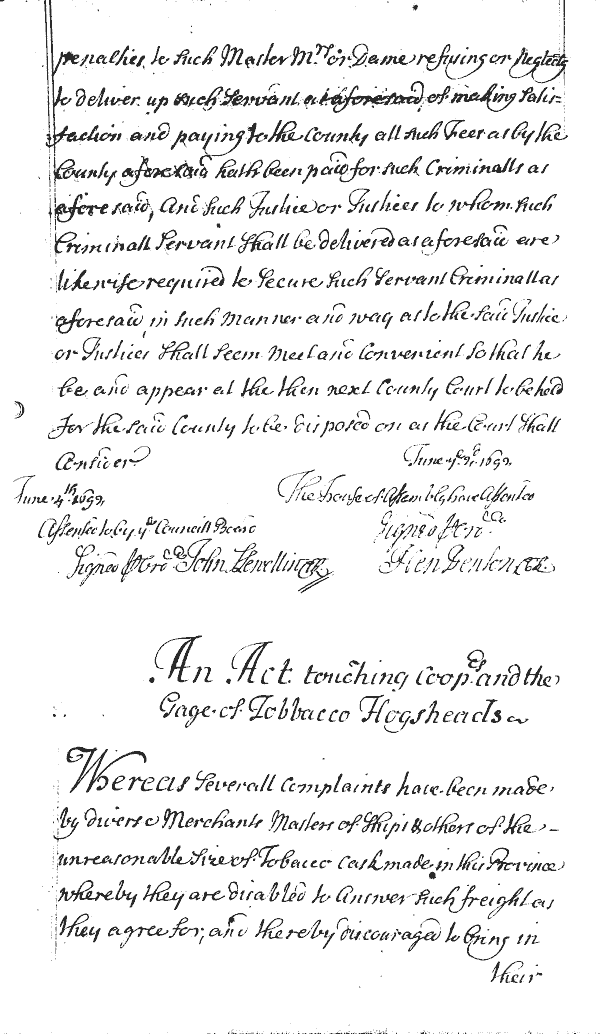 penalties to such Master Mrs or Dame refusing or Neglectg
to deliver up such Servant at aforesaid of making Satis-
faction and paying to the County all such Fees as by the
County aforesaid hath been paid for such Criminalls as
aforesaid, And such Justice or Justices to whom such
Criminall Servant shall be delivered as aforesaid are
likewise required to Secure such Servant Criminall as
aforesaid, in such manner and way as to the said Justice
or Justices Shall Seem meet and Convenient So that he
be and appear at the then next County Court to be hold
for the said County to be disposed on as the Court Shall
Consider
June ye 3d 1692
June 4th 1692
The house of Assembly have Assented
Assented to by ye Councill Board
Signed p ord
Signed p ordr John Llewellin Clk
Hen Denton Clk
An Act touching Coopers and the
Gage of Tobbacco Hogsheads
Whereas Severall Complaints have been made
by divers Merchants Masters of Ships & others of the -
unreasonable Size of Tobacco Cask made in this Province
whereby they are disabled to Answer such freight as
they agree for, and thereby discouraged to bring in
their